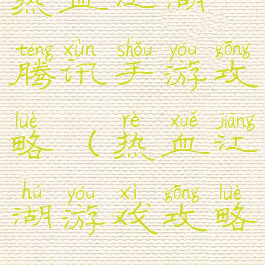 热血江湖
téng xùn shǒu yóu gōng
腾讯手游攻
lüè rè xuě jiāng
略（热血江
hú yóu xì gōng lüè
湖游戏攻略